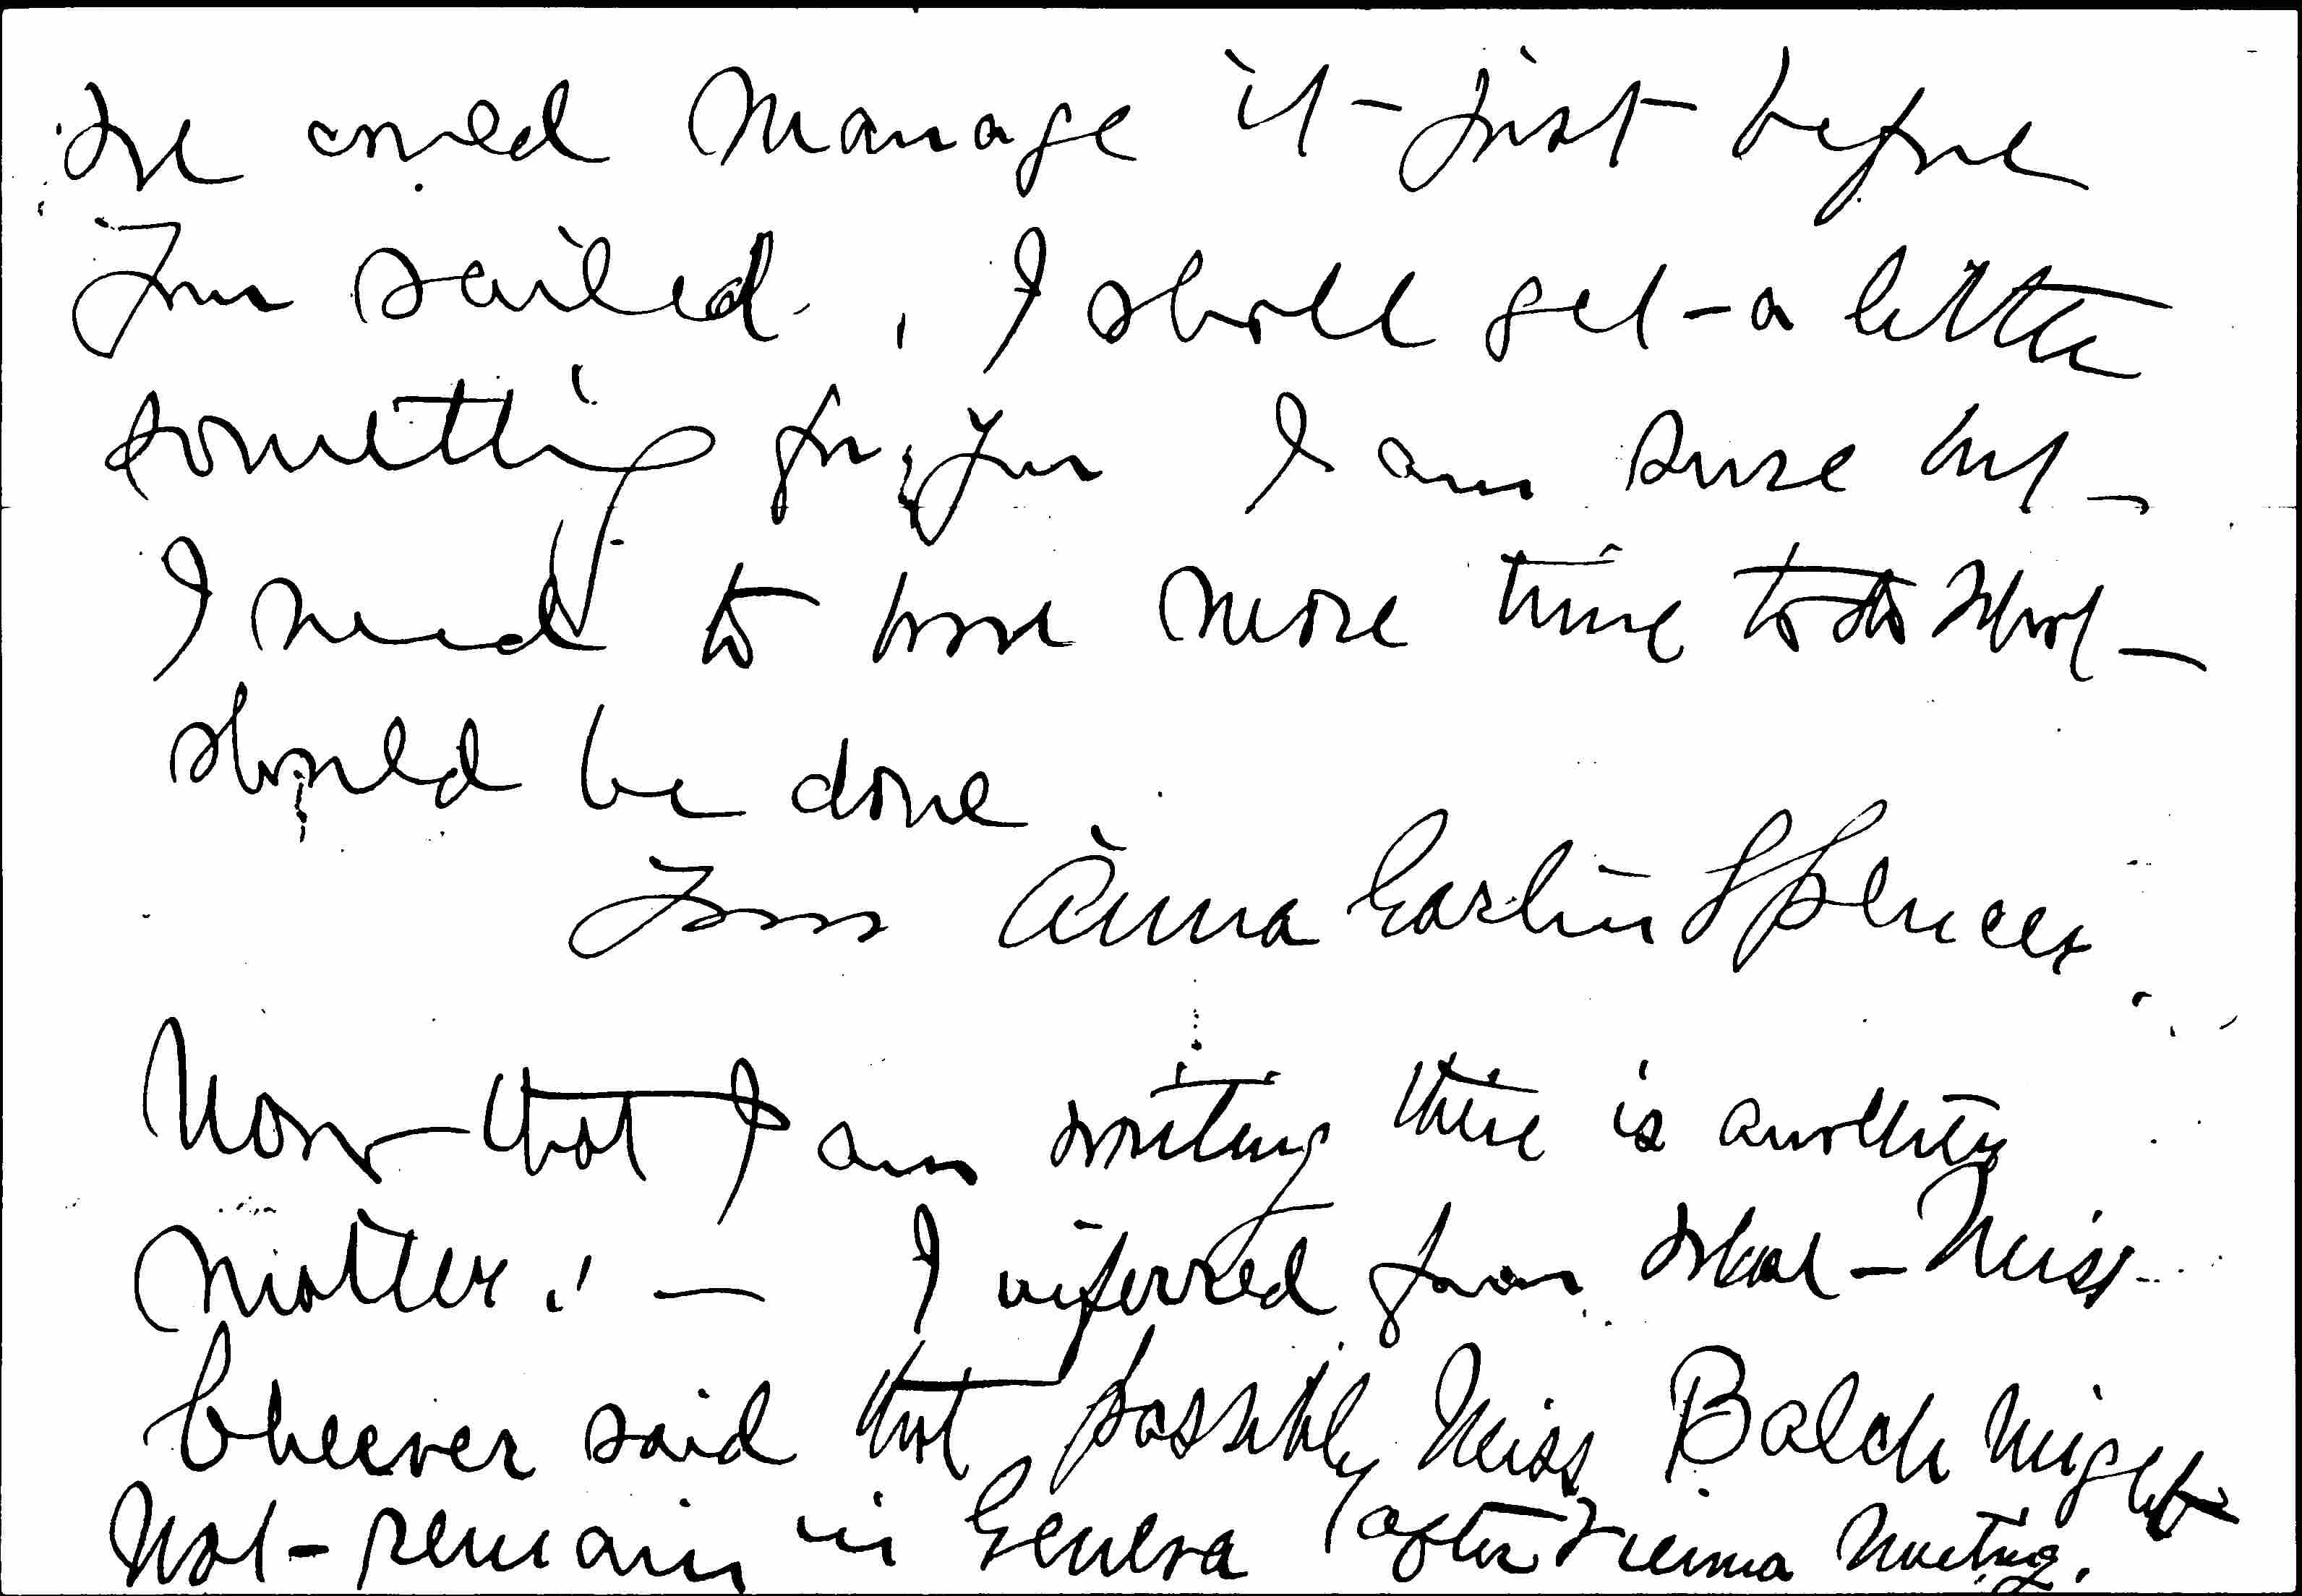 we could manage it - just before
you sailed. I shall get - a little
something for you I am sure but -
I need to have more time to do what -
should be done
Yours Anna Garlin Spencer
Now that I am writing there is another
matter. — I inferred from what - Miss
Cheever said that possibly Miss Balch might
not - remain in Geneva after Vienna meeting.